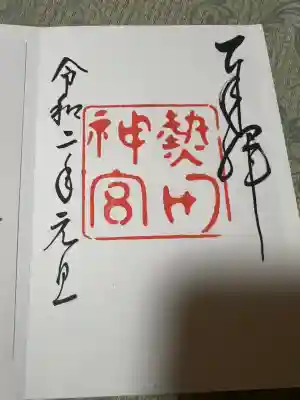 奉拝
熱田神宮
令和二年元旦